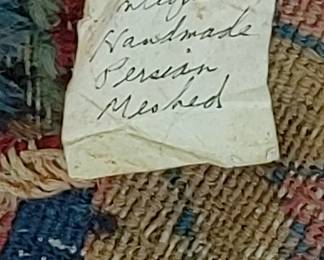 Handmade
Persian
Meshed